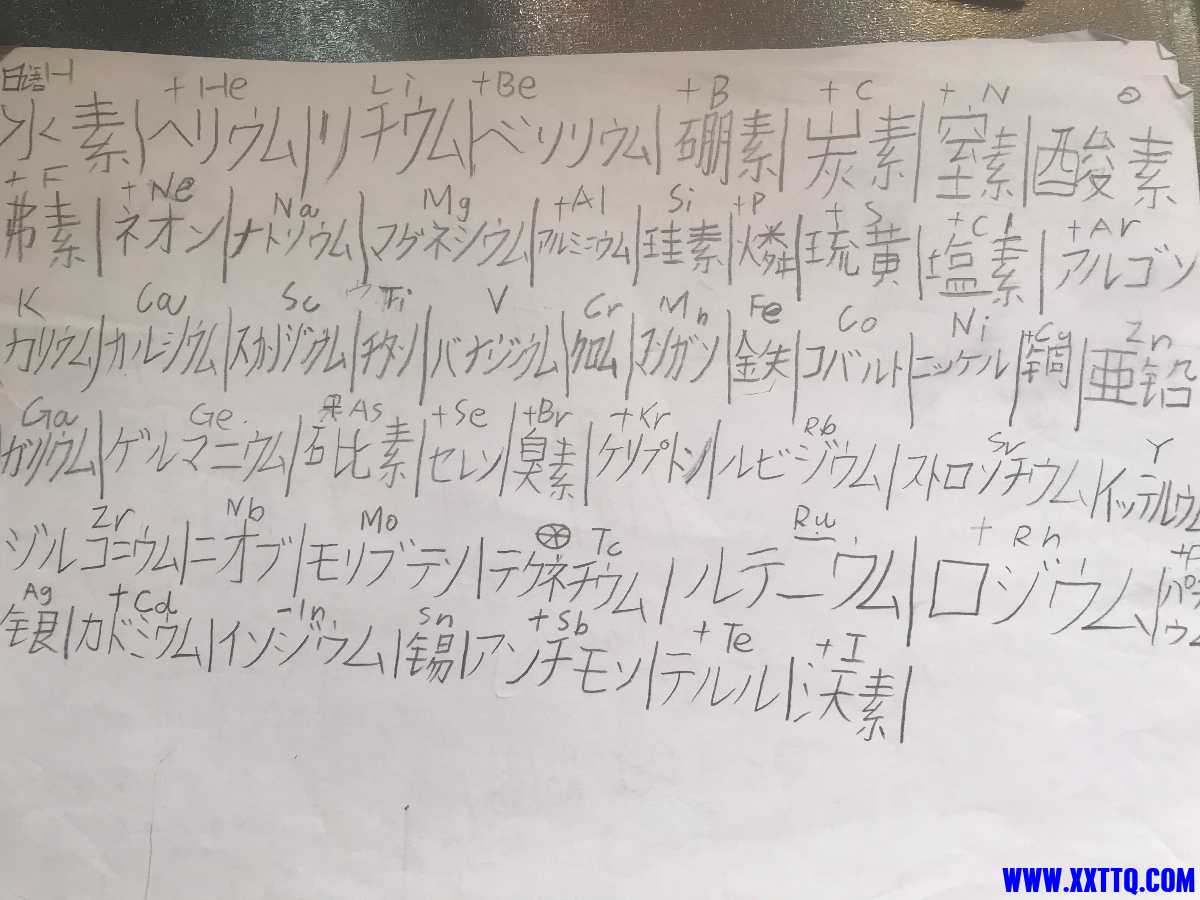 日语 H +He Li +Be +B +C +N O
水素|ヘリウム|リチウム|ベリリウム|硼素|炭素|窒素|酸素
+F +Ne Na Mg +Al Si +P +S +Cl +Ar
弗素|ネオン|ナトリウム|マグネシウム|アルミニウム|珪素|燐|琉黄|塩素|アルゴン
K Ca Sc Ti V Cr Mn Fe Co Ni +Cu Zn
カリウム|カルシウム|スカンジウム|チタン|バナジウム|クロム|マンガン|鉄|コバルト|ニッケル|銅|亜鉛
Ga Ge As +Se +Br +Kr Rb Sr Y
ガリウム|ゲルマニウム|砒素|セレン|臭素|ケリプトン|ルビジウム|ストロンチウム|イッテルウム
Zr Nb Mo Tc Ru +Rh
ジルコニウム|ニオブ|モリブデン|テクネチウム|ルテニウム|ロジウム|パラ
ウム
Ag +Cd -In Sn +Sb +Te +I
银|カドミウム|インジウム|锡|アンチモン|テルル|沃素|
WWW.XXTTQ.COM